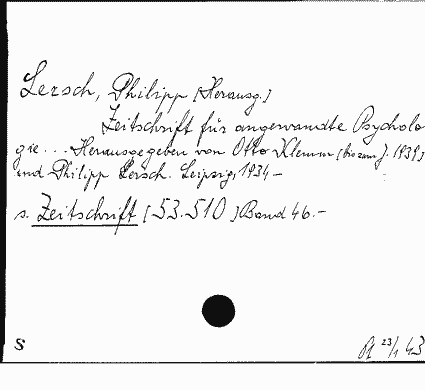 Lersch, Philipp [Herausg.]
Zeitschrift für angewandte Psycholo
gie... Herausgegeben von Otto Klemm (bis zum J. 1939)
und Philipp Lersch. Leipzig, 1934 -
s. Zeitschrift [53.510] Band 46.-
S
23/1 43